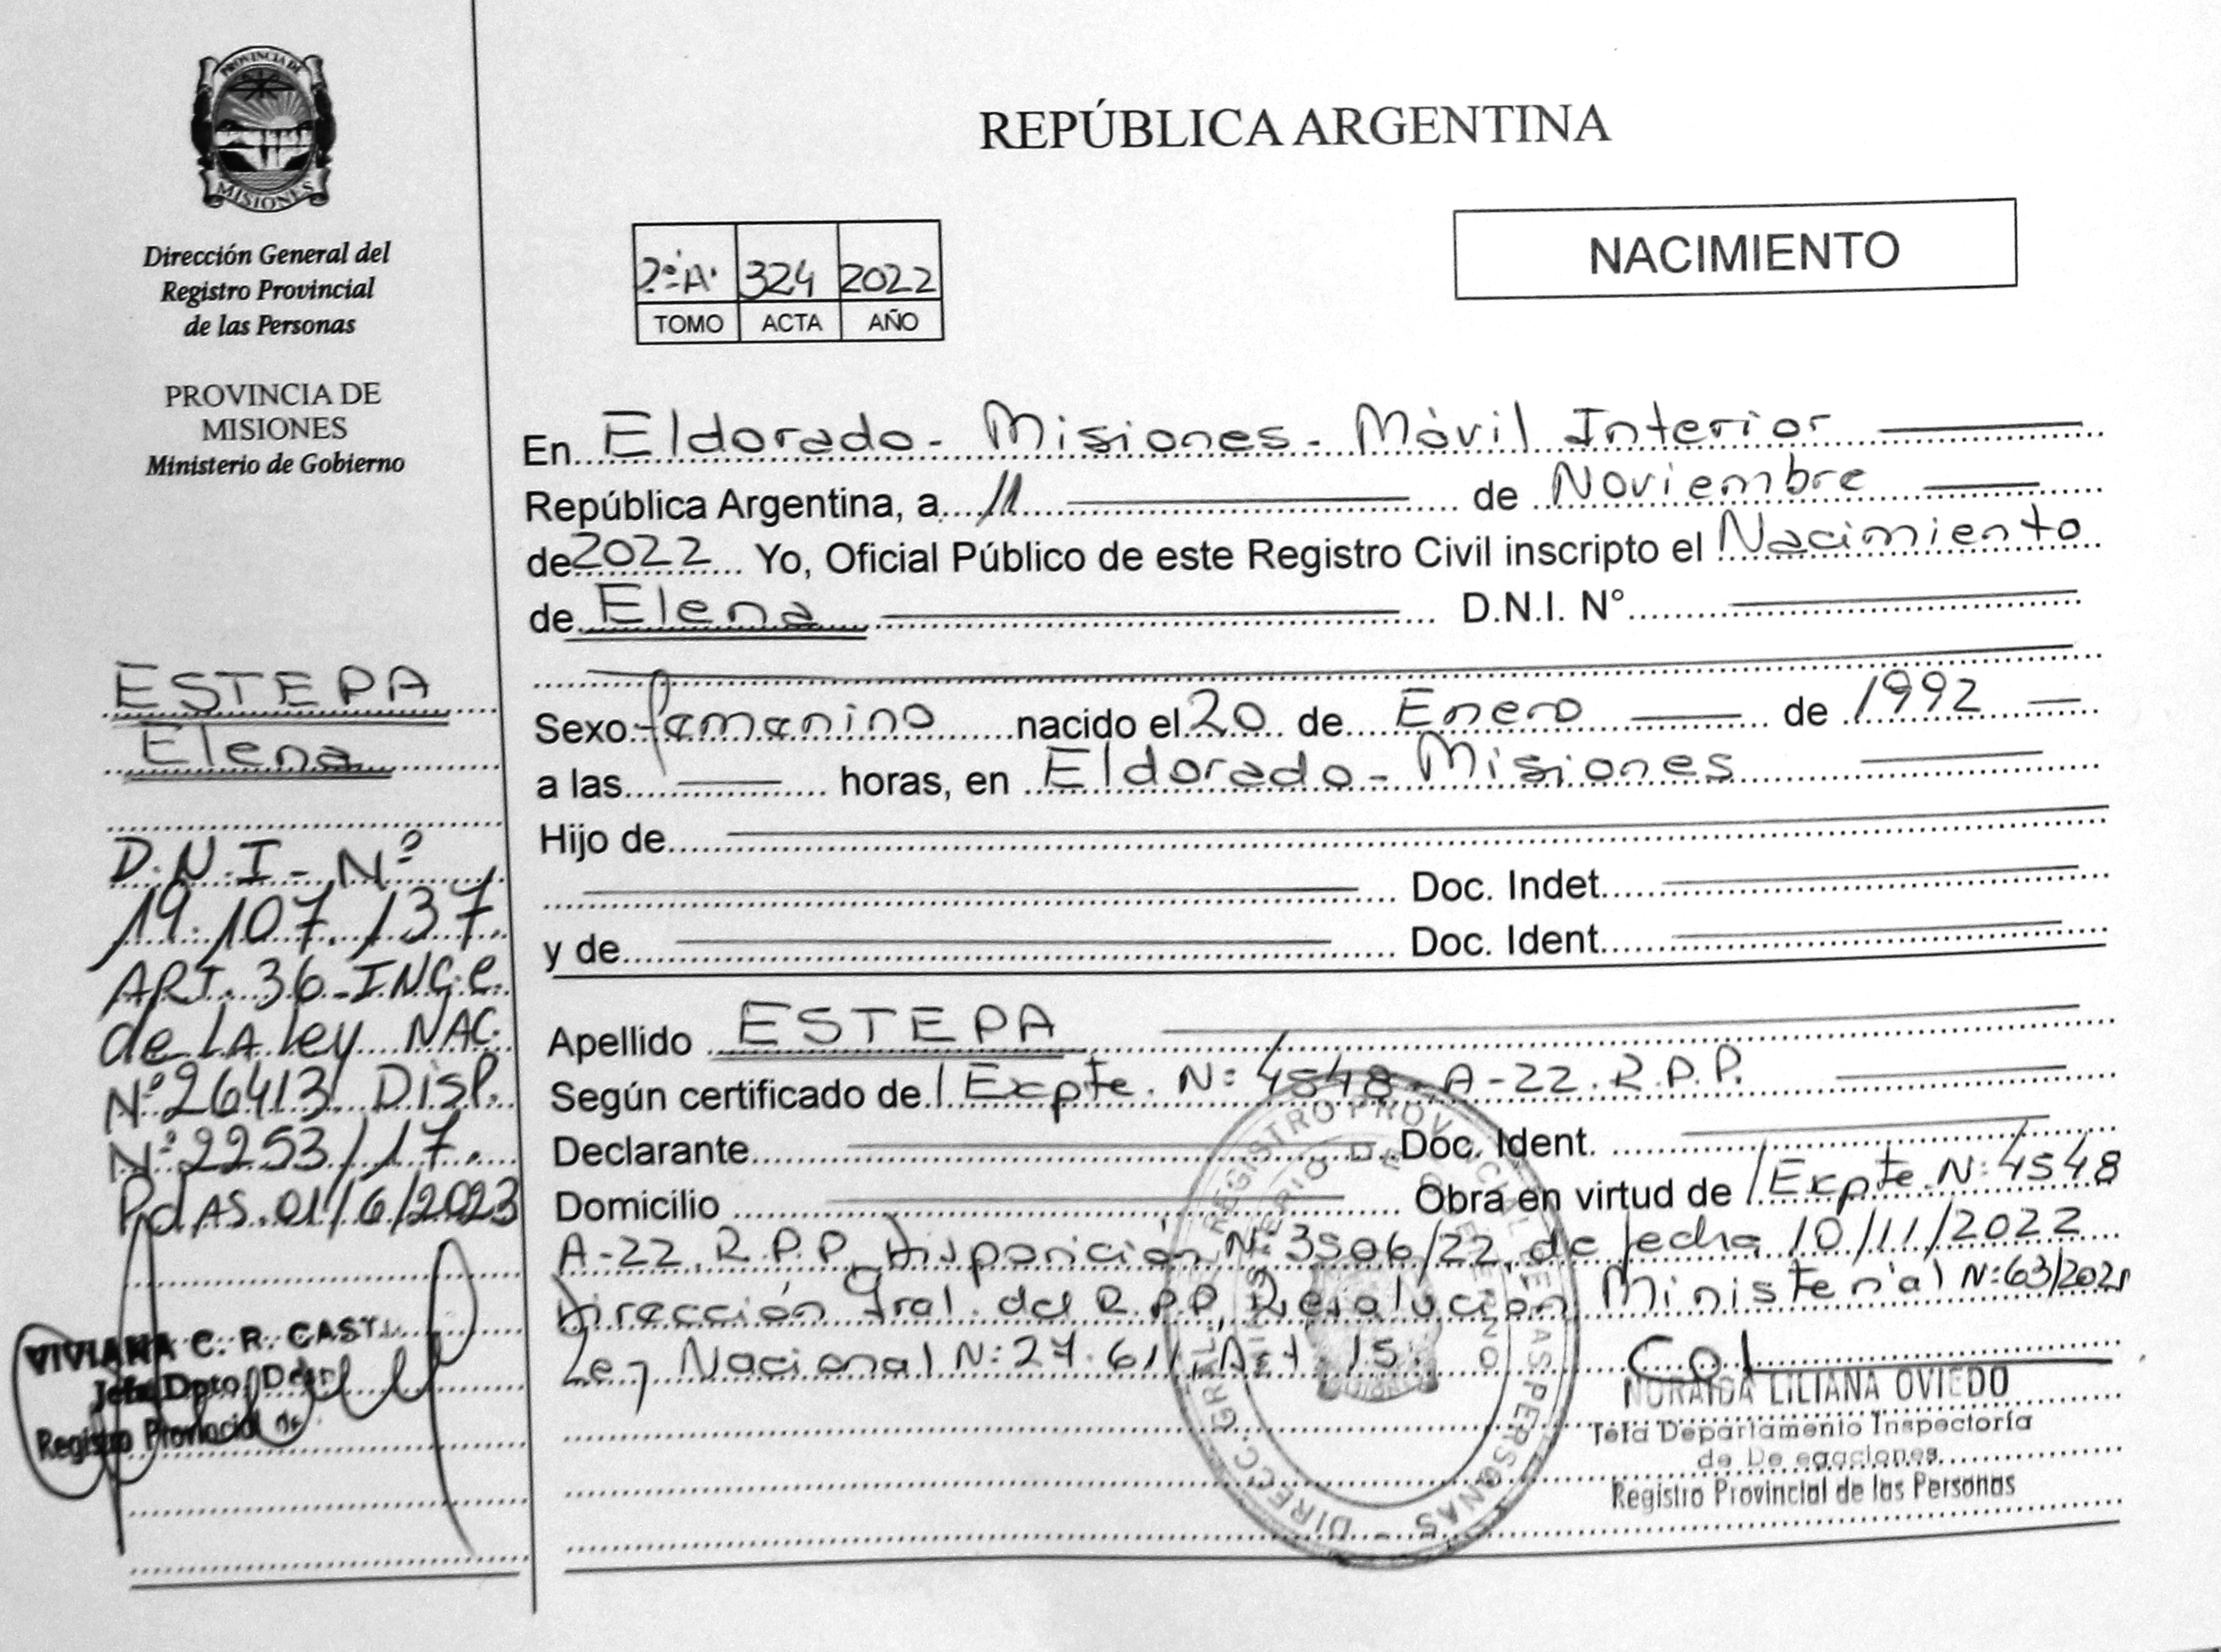 PROVINCIA DE
MISIONES
Dirección General del
Registro Provincial
de las Personas
PROVINCIA DE
MISIONES
Ministerio de Gobierno
ESTEPA
Elena
D.N.I - Nº
19.107.137.
ART. 36 - INC.C.
de LA ley NAC.
Nº 26413 DISP.
Nº 2253/17.
PdAS. 01/6/2023
VIVIANA C. R.
Jefa Dpto.
Registro Provincial de
REPÚBLICA ARGENTINA
NACIMIENTO
2º A. 324 2022
TOMO ACTA AÑO
En Eldorado - Misiones - Móvil Interior
República Argentina, a 11 de Noviembre
de 2022 Yo, Oficial Público de este Registro Civil inscripto el Nacimiento
de Elena D.N.I. N°
Sexo femenino nacido el 20 de Enero de 1992
a las horas, en Eldorado - Misiones
Hijo de
Doc. Indet.
y de Doc. Ident.
Apellido ESTEPA
Según certificado de Expte. Nº 4548 - A-22. R.P.P.
Declarante Doc. Ident.
Domicilio Obra en virtud de Expte. Nº 4548
A-22. R.P.P. Disposición Nº 3506/22, de fecha 10/11/2022
Dirección Gral. del R.P.P. Resolución Ministerial Nº 63/2021
Ley Nacional Nº 27.611 Art 15.
NORAIDA LILIANA OVIEDO
Jefa Departamento Inspectoría
de Delegaciones
Registro Provincial de las Personas
DIRECC. GRAL. REGISTRO PROVINCIAL DE LAS PERSONAS
MINISTERIO DE GOBIERNO